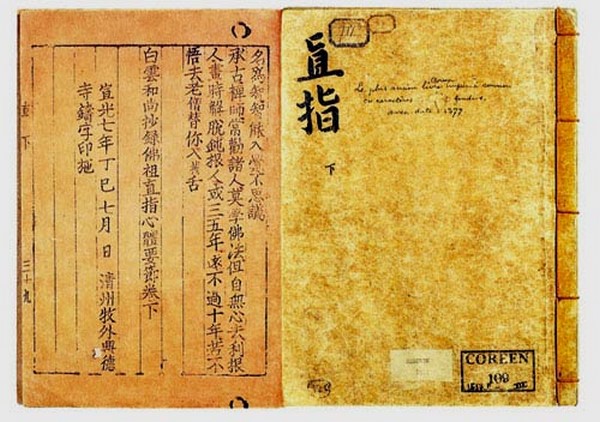 名爲 智能入 不思議
承古禪師常勸諸人莫學佛法但自無心去利根
人晝時解脫鈍根人或三五年遠不過十年若不
悟去老僧替你入 舌
白雲和尚抄錄佛祖直指心體要節卷下
宣光七年丁巳七月 日 清州牧外興德
寺鑄字印施
直 下
三十九
III
直指
下
coréen
Le plus ancien livre imprimé connu
en caractères fondus,
avec date = 1377
COREEN
109